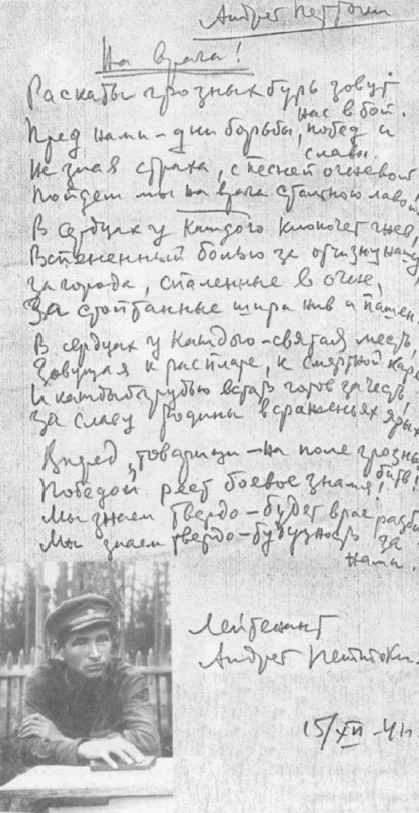 Андрей
На врага!
Раскаты грозных бурь зовут
нас в бой.
Пред нами – дни борьбы, побед и
славы.
Не зная страха, с песней огневой
Пойдем мы на врага стальною лавой!
В сердцах у каждого клокочет гнев,
Вспененный болью за отчизну нашу,
за города, спаленные в огне,
За стоптанные шири нив и пашен.
В сердцах у каждого – святая месть,
Зовущая к расплате, к смертной каре
И каждый грудью встать готов за честь,
За славу Родины в сраженьях ярых.
Вперед, товарищи – на поле грозных
битв!
Победой реет боевое знамя!
Мы знаем твердо – будет враг разбит
Мы знаем твердо – будущность за
нами.
Лейтенант
Андрей
15/XII – 41